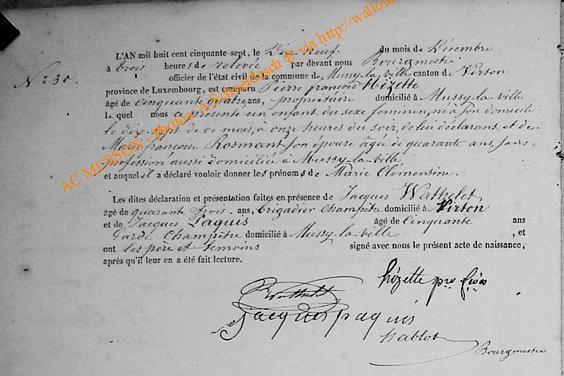 N° 30.
L'AN mil huit cent cinquante-sept, le Dix Neuf du mois de Décembre
à trois heures de relevée par devant nous Bourgmestre
officier de l'état civil de la commune de Mussy-la-ville canton de Virton
province de Luxembourg, est comparu Pierre françois Hizette
âgé de Cinquante quatre ans, propriétaire domicilié à Mussy-la-ville
lequel nous a présenté un enfant du sexe feminin, né à son domicile
le dix-sept de ce mois, à onze heures du soir, de lui déclarant, et de
Marie françoise Rosmant son épouse agée de quarante ans sans
profession aussi domiciliée à Mussy-la-ville,
et auquel il a déclaré vouloir donner les prénoms de Marie Clémentine.
Les dites déclaration et présentation faites en présence de Jacques Watthelet
âgé de quarante trois ans, brigadier champêtre domicilié à Virton
et de Jacques Paquis âgé de Cinquante ans
Garde Champêtre domicilié à Mussy-la-ville, et
les père et témoins signé avec nous le présent acte de naissance,
après qu'il leur en a été fait lecture.
hizette pre fçois
Watthelet
Jacques paquis
Bourgmestre
AC MUSSON - Photos A. via http://wallonia